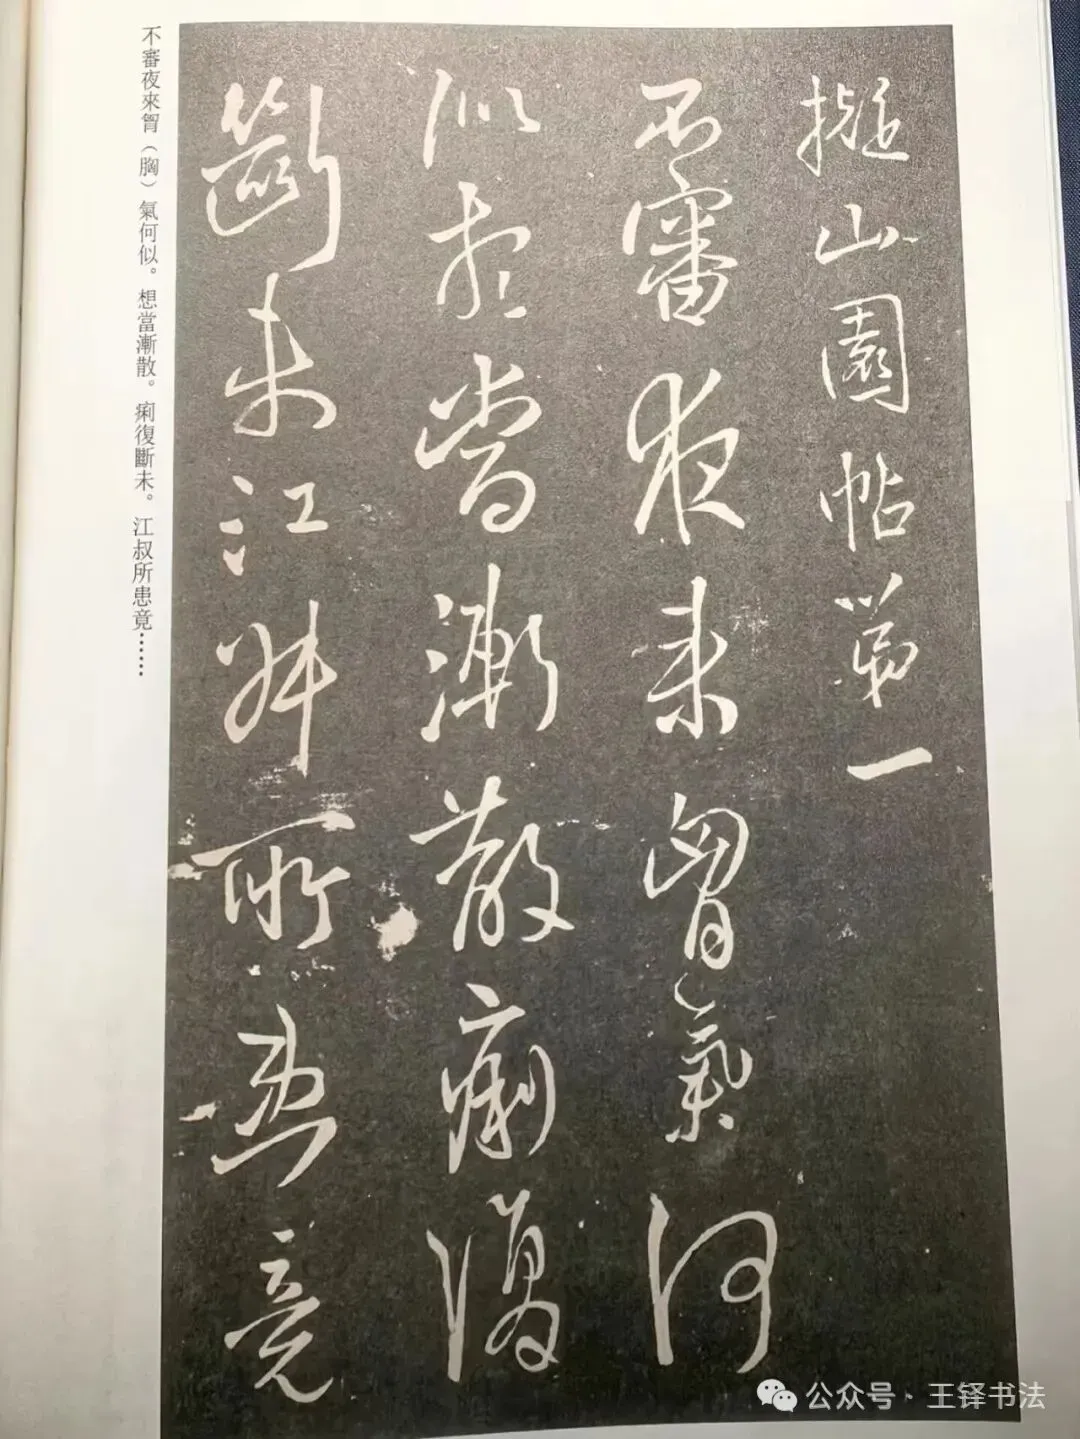 擬山園帖第一
不審夜來胷氣何
似想當漸散痢復
斷未江叔所患竟
不審夜來胷（胸）氣何似。想當漸散。痢復斷未。江叔所患竟……
公众号·王铎书法